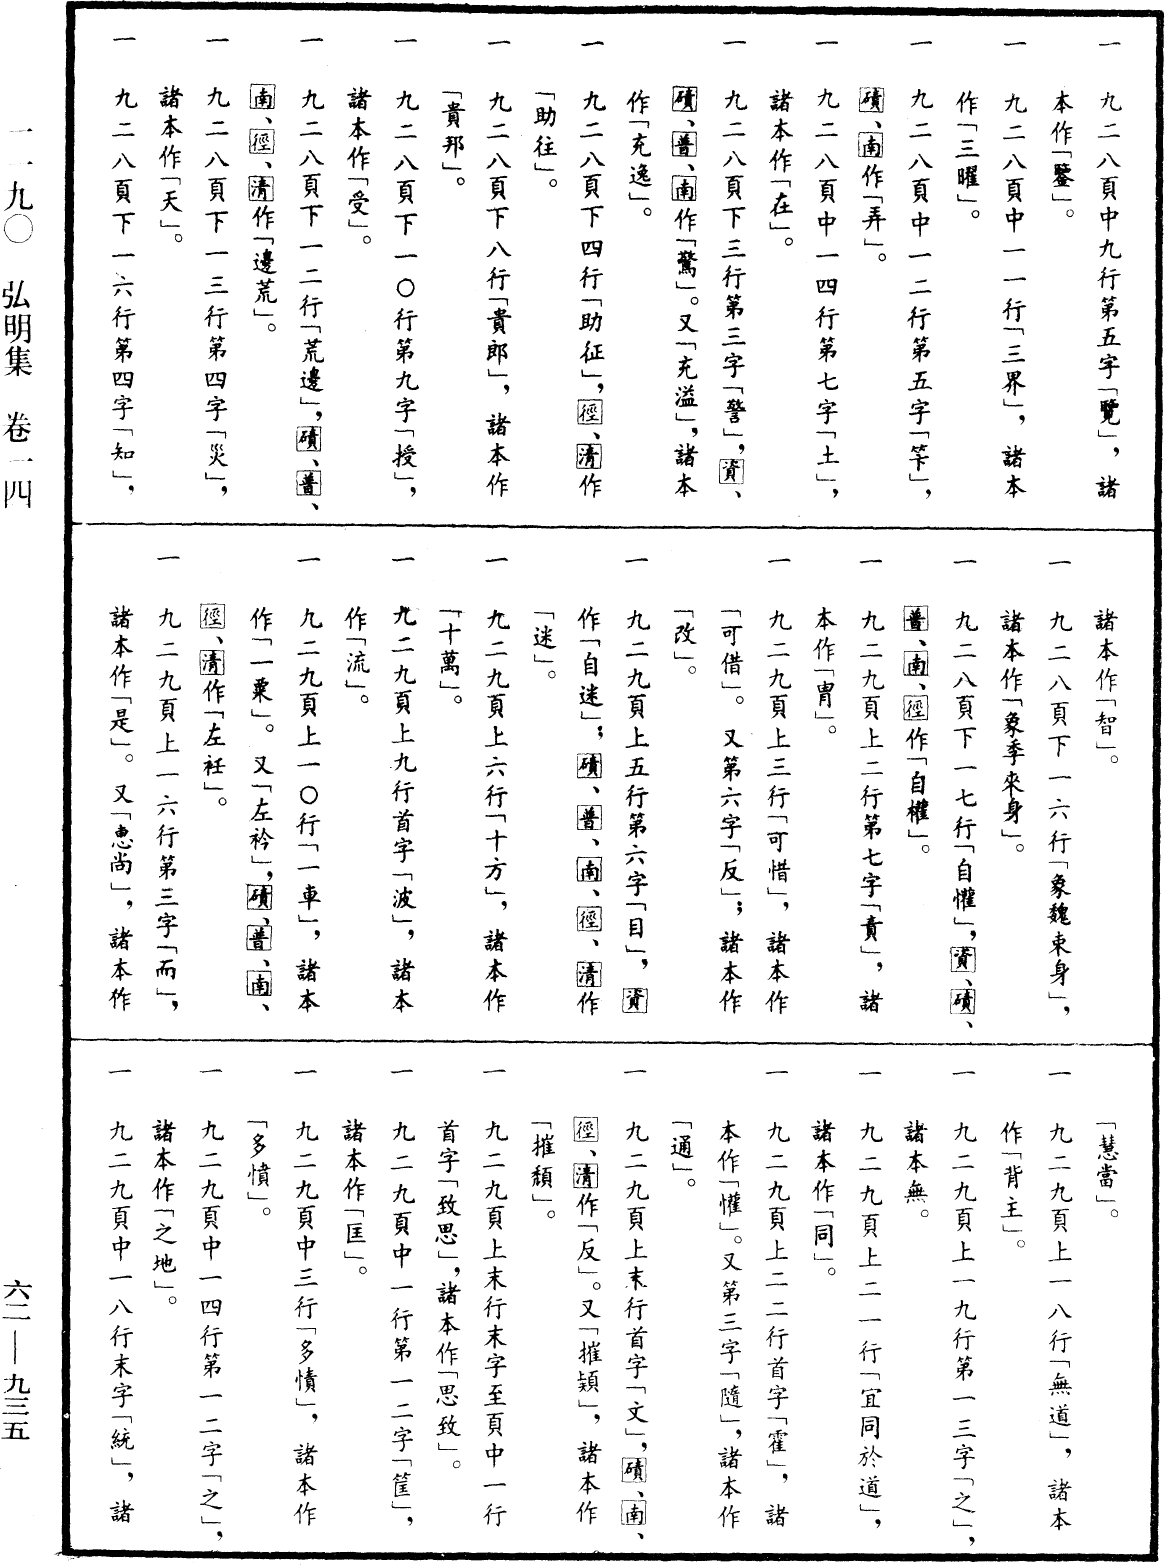 一　九二八頁中九行第五字「覽」，諸
本作「鑒」。
一　九二八頁中一一行「三界」，諸本
作「三曜」。
一　九二八頁中一二行第五字「筭」，
磧、南作「弄」。
一　九二八頁中一四行第七字「土」，
諸本作「在」。
一　九二八頁下三行第三字「警」，資、
磧、普、南作「驚」。又「充溢」，諸本
作「充逸」。
一　九二八頁下四行「助征」，徑、清作
「助往」。
一　九二八頁下八行「貴郎」，諸本作
「貴邦」。
一　九二八頁下一〇行第九字「授」，
諸本作「受」。
一　九二八頁下一二行「荒邊」，磧、普、
南、徑、清作「邊荒」。
一　九二八頁下一三行第四字「災」，
諸本作「天」。
一　九二八頁下一六行第四字「知」，
諸本作「智」。
一　九二八頁下一六行「象魏束身」，
諸本作「象季來身」。
一　九二八頁下一七行「自懽」，資、磧、
普、南、徑作「自權」。
一　九二九頁上二行第七字「責」，諸
本作「胄」。
一　九二九頁上三行「可惜」，諸本作
「可借」。又第六字「反」；諸本作
「改」。
一　九二九頁上五行第六字「目」，資
作「自迷」；磧、普、南、徑、清作
「迷」。
一　九二九頁上六行「十方」，諸本作
「十萬」。
一　九二九頁上九行首字「波」，諸本
作「流」。
一　九二九頁上一〇行「一車」，諸本
作「一乘」。又「左衿」，磧、普、南、
徑、清作「左衽」。
一　九二九頁上一六行第三字「而」，
諸本作「是」。又「惠尚」，諸本作
「慧當」。
一　九二九頁上一八行「無道」，諸本
作「背主」。
一　九二九頁上一九行第一三字「之」，
諸本無。
一　九二九頁上二一行「宜同於道」，
諸本作「同」。
一　九二九頁上二二行首字「霍」，諸
本作「懽」。又第三字「隨」，諸本作
「通」。
一　九二九頁上末行首字「文」，磧、南、
徑、清作「反」。又「摧穎」，諸本作
「摧頹」。
一　九二九頁上末行末字至頁中一行
首字「致思」，諸本作「思致」。
一　九二九頁中一行第一二字「筐」，
諸本作「匡」。
一　九二九頁中三行「多憒」，諸本作
「多憤」。
一　九二九頁中一四行第一二字「之」，
諸本作「之地」。
一　九二九頁中一八行末字「統」，諸
一一九〇　弘明集　卷一四
六二—九三五